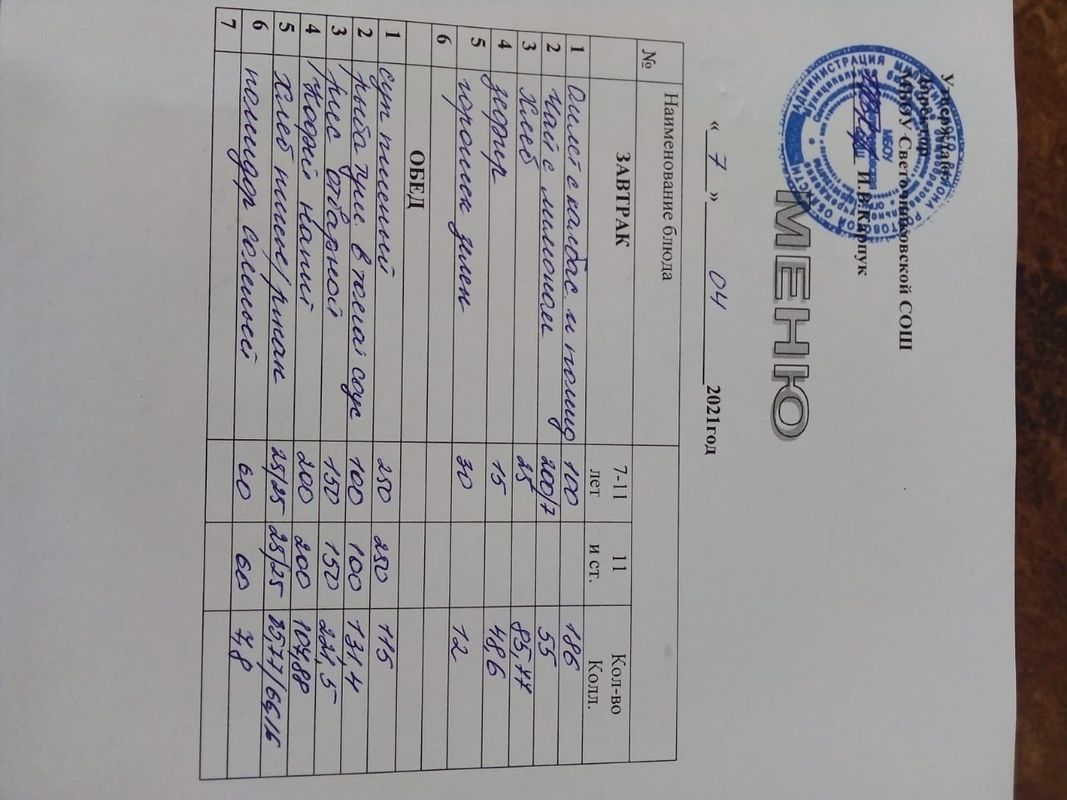 Утверждаю
Директор
МБОУ Светочниковской СОШ
И.В.Карпук
МЕНЮ
« 7 » 04 2021год
№ Наименование блюда
ЗАВТРАК 7-11 лет 11 и ст. Кол-во Колл.
1 Омлет с калбас. и помид 100 186
2 Чай с лимоном 200/7 55
3 Хлеб 25 85,77
4 зефир 15 48,6
5 горошек зелен 30 12
6
ОБЕД
1 суп пшенный 250 250 115
2 рыба туш. в томат соус 100 100 131,4
3 рис отварной 150 150 221,5
4 Кофий напий 200 200 107,88
5 Хлеб пшен/ржан 25/25 25/25 85,77/66,16
6 помидор соленый 60 60 7,8
7